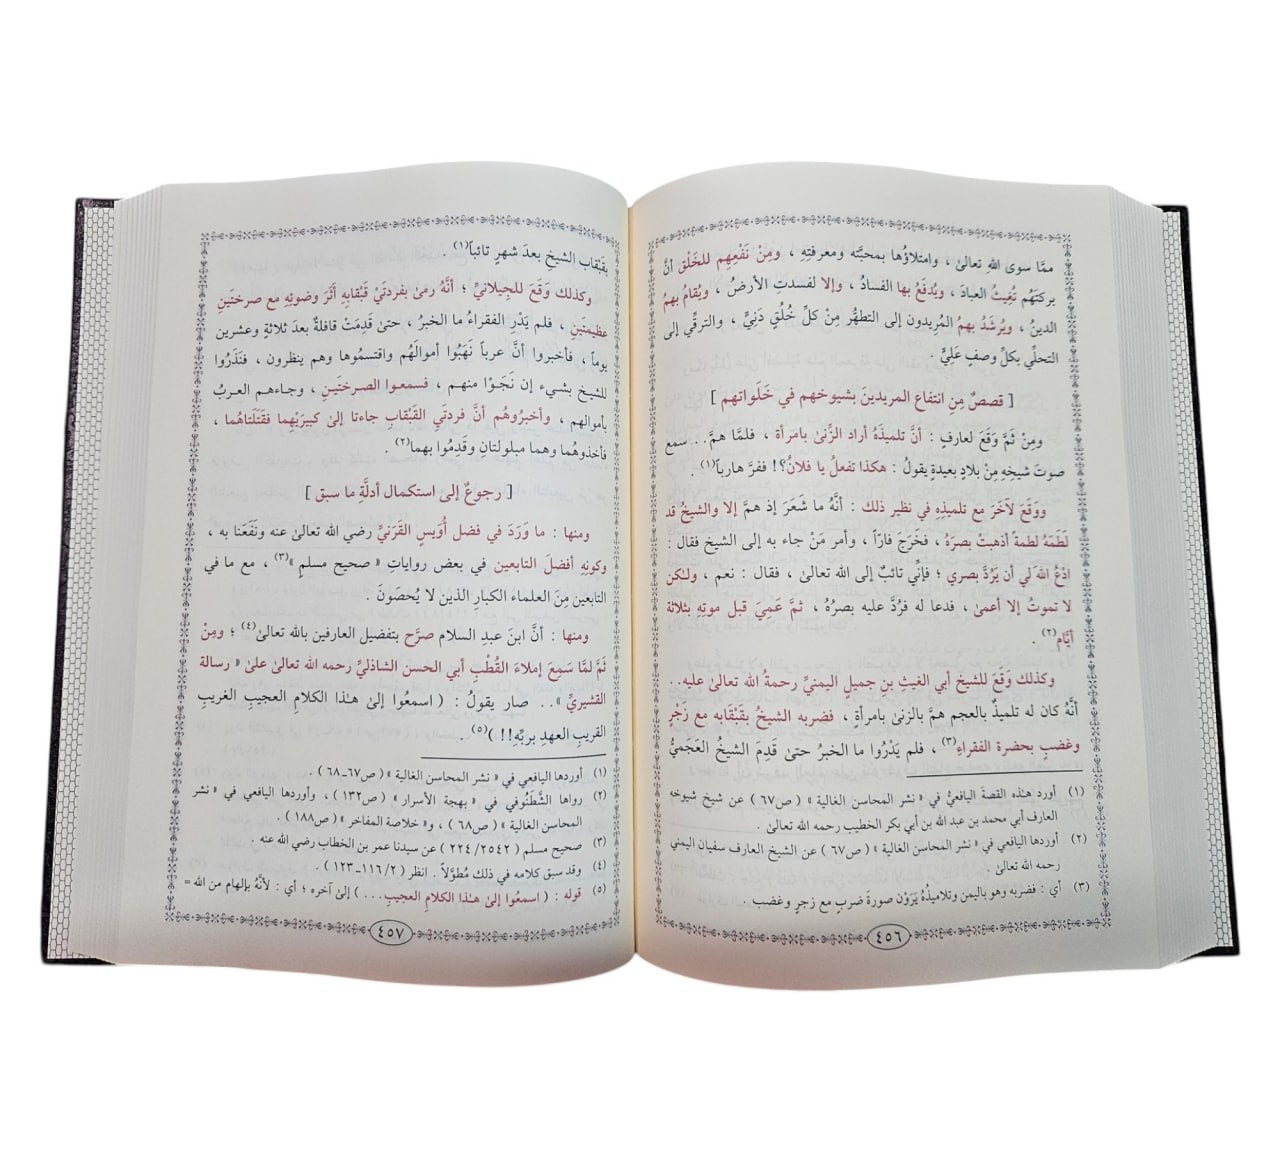 ممَّا سوى اللهِ تعالىٰ ، وامتلاؤُها بمحبَّته ومعرفتِهِ ، ومِنْ نَفْعِهِم للخَلْق أنَّ
بركتَهُم تُغِيثُ العبادَ ، ويُدفَعُ بها الفسادُ ، وإلا لفسدتِ الأرضُ ، ويُقامُ بهمُ
الدينُ ، ويُرشَدُ بهمُ المُريدون إلى التطهُّرِ مِنْ كلِّ خُلُقٍ دَنِيٍّ ، والترقِّي إلى
التحلِّي بكلِّ وصفٍ عَلِيٍّ .
[ قصصٌ مِنِ انتفاع المريدينَ بشيوخهم في خَلَواتهم ]
ومِنْ ثَمَّ وَقَعَ لعارفٍ : أنَّ تلميذَهُ أراد الزِّنىٰ بامرأة ، فلمَّا همَّ . . سمع
صوتَ شيخِهِ مِنْ بلادٍ بعيدةٍ يقولُ : هكذا تفعلُ يا فلانُ؟! ففرَّ هارباً(١) .
ووَقَعَ لآخَرَ مع تلميذِهِ في نظير ذلك : أنَّهُ ما شَعَرَ إذ همَّ إلا والشيخُ قد
لَطَمَهُ لطمةً أذهبتْ بصرَهُ ، فخَرَجَ فارّاً ، وأمر مَنْ جاء به إلى الشيخ فقال :
ادْعُ اللهَ لي أن يَرُدَّ بصري ؛ فإنِّي تائبٌ إلى الله تعالىٰ ، فقال : نعم ، ولـٰكن
لا تموتُ إلا أعمىٰ ، فدعا له فرُدَّ عليه بصرُهُ ، ثمَّ عَمِيَ قبل موتِهِ بثلاثة
أيَّام(٢) .
وكذلك وَقَعَ للشيخ أبي الغيثِ بنِ جميلٍ اليمنيِّ رحمةُ الله تعالىٰ عليه . .
أنَّهُ كان له تلميذٌ بالعجم همَّ بالزنىٰ بامرأةٍ ، فضربه الشيخُ بقَبْقَابه مع زَجْرٍ
وغضبٍ بحضرة الفقراءِ(٣) ، فلم يَدْرُوا ما الخبرُ حتىٰ قَدِمَ الشيخُ العَجَميُّ
(١) أورد هـٰذه القصةَ اليافعيُّ في « نشر المحاسن الغالية » ( ص٦٧ ) عن شيخ شيوخه
العارف أبي محمد بن عبد الله بن أبي بكر الخطيب رحمه الله تعالىٰ .
(٢) أوردها اليافعي في « نشر المحاسن الغالية » ( ص٦٧ ) عن الشيخ العارف سفيان اليمني
رحمه الله تعالىٰ .
(٣) أي : فضربه وهو باليمن وتلاميذُهُ يَرَوْن صورةَ ضربٍ مع زجرٍ وغضب .
٤٥٦
بقَبْقاب الشيخِ بعدَ شهرٍ تائباً(١) .
وكذلك وَقَعَ للجِيلانيِّ ؛ أنَّهُ رمىٰ بفردتَيْ قَبْقابِهِ أثَرَ وضوئِهِ مع صرختَينِ
عظيمتَينِ ، فلم يَدْرِ الفقراءُ ما الخبرُ ، حتىٰ قَدِمَتْ قافلةٌ بعدَ ثلاثةٍ وعشرين
يوماً ، فأخبروا أنَّ عرباً نَهَبُوا أموالَهُم واقتسمُوها وهم ينظرون ، فنَذَرُوا
للشيخ بشيء إن نَجَوْا منهم ، فسمعوا الصرختَينِ ، وجاءهم العربُ
بأموالهم ، وأخبرُوهُم أنَّ فردتَيِ القَبْقابِ جاءتا إلىٰ كبيرَيْهِما فقَتَلَتاهُما ،
فأخذوهُما وهما مبلولتانِ وقَدِمُوا بهما(٢) .
[ رجوعٌ إلى استكمال أدلَّةِ ما سبق ]
ومنها : ما وَرَدَ في فضل أُوَيسٍ القَرَنيِّ رضي الله تعالىٰ عنه ونَفَعَنا به ،
وكونِهِ أفضلَ التابعين في بعض رواياتِ « صحيح مسلم »(٣) ، مع ما في
التابعين مِنَ العلماء الكبارِ الذين لا يُحصَونَ .
ومنها : أنَّ ابنَ عبدِ السلام صرَّح بتفضيل العارفين بالله تعالىٰ(٤) ؛ ومِنْ
ثَمَّ لمَّا سَمِعَ إملاءَ القُطْبِ أبي الحسن الشاذليِّ رحمه الله تعالىٰ علىٰ « رسالة
القشيريِّ » . . صار يقولُ : ( اسمعُوا إلىٰ هـٰذا الكلامِ العجيبِ الغريبِ
القريبِ العهدِ بربِّهِ!! )(٥) .
(١) أوردها اليافعي في « نشر المحاسن الغالية » ( ص٦٧ـ٦٨ ) .
(٢) رواها الشَّطَنُوفي في « بهجة الأسرار » ( ص١٣٢ ) ، وأوردها اليافعي في « نشر
المحاسن الغالية » ( ص٦٨ ) ، و« خلاصة المفاخر » ( ص١٨٨ ) .
(٣) صحيح مسلم ( ٢٢٤/٢٥٤٢ ) عن سيدنا عمر بن الخطاب رضي الله عنه .
(٤) وقد سبق كلامه في ذلك مُطوَّلاً . انظر ( ١١٦/٢ـ١٢٣ ) .
(٥) قوله : ( اسمعُوا إلىٰ هـٰذا الكلامِ العجيبِ . . . ) إلىٰ آخره ؛ أي : لأنَّهُ بإلهام من الله =
٤٥٧